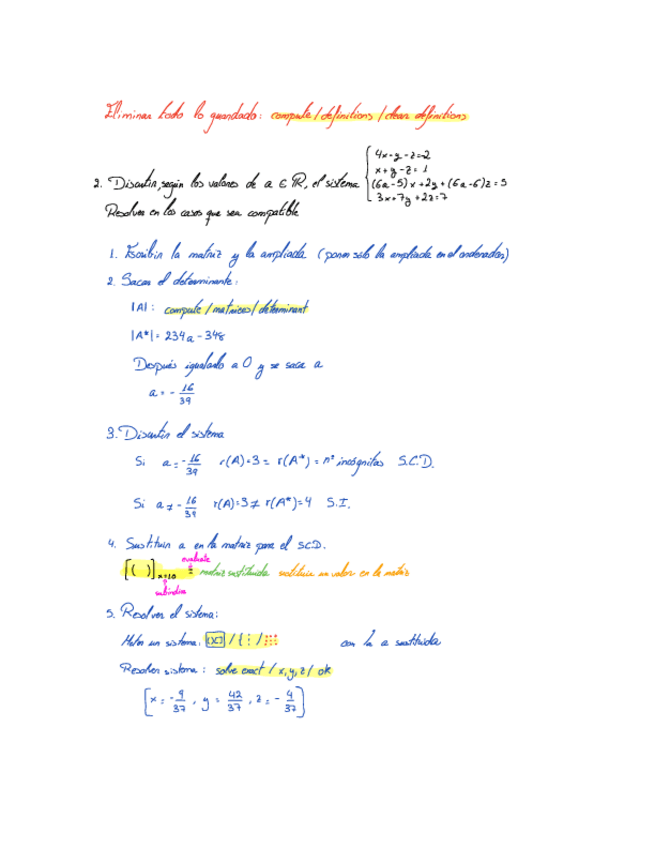 Eliminar todo lo guardado: compute / definitions / clear definitions
2. Discutir, según los valores de a ∈ ℝ, el sistema
4x-y-z=2
x+y-z=1
(6a-5)x+2y+(6a-6)z=5
3x+7y+2z=7
Resolver en los casos que sea compatible
1. Escribir la matriz y la ampliada (poner sólo la ampliada en el ordenador)
2. Sacar el determinante:
|A|: compute / matrices / determinant
|A*|= 234a - 348
Después igualarlo a 0 y se saca a
a = - 16/39
3. Discutir el sistema
Si a = -16/39 r(A)=3 = r(A*) = nº incógnitas S.C.D.
Si a ≠ -16/39 r(A)=3 ≠ r(A*)=4 S.I.
4. Sustituir a en la matriz para el S.C.D.
evaluate
[( )]x=10 = matriz sustituida sustituir un valor en la matriz
subíndice
5. Resolver el sistema:
Meter un sistema: [(x)] / { ⋮ / ⋮⋮⋮ con la a sustituida
Resolver sistema: solve exact / x, y, z / ok
[x = -9/37, y = 42/37, z = -4/37]